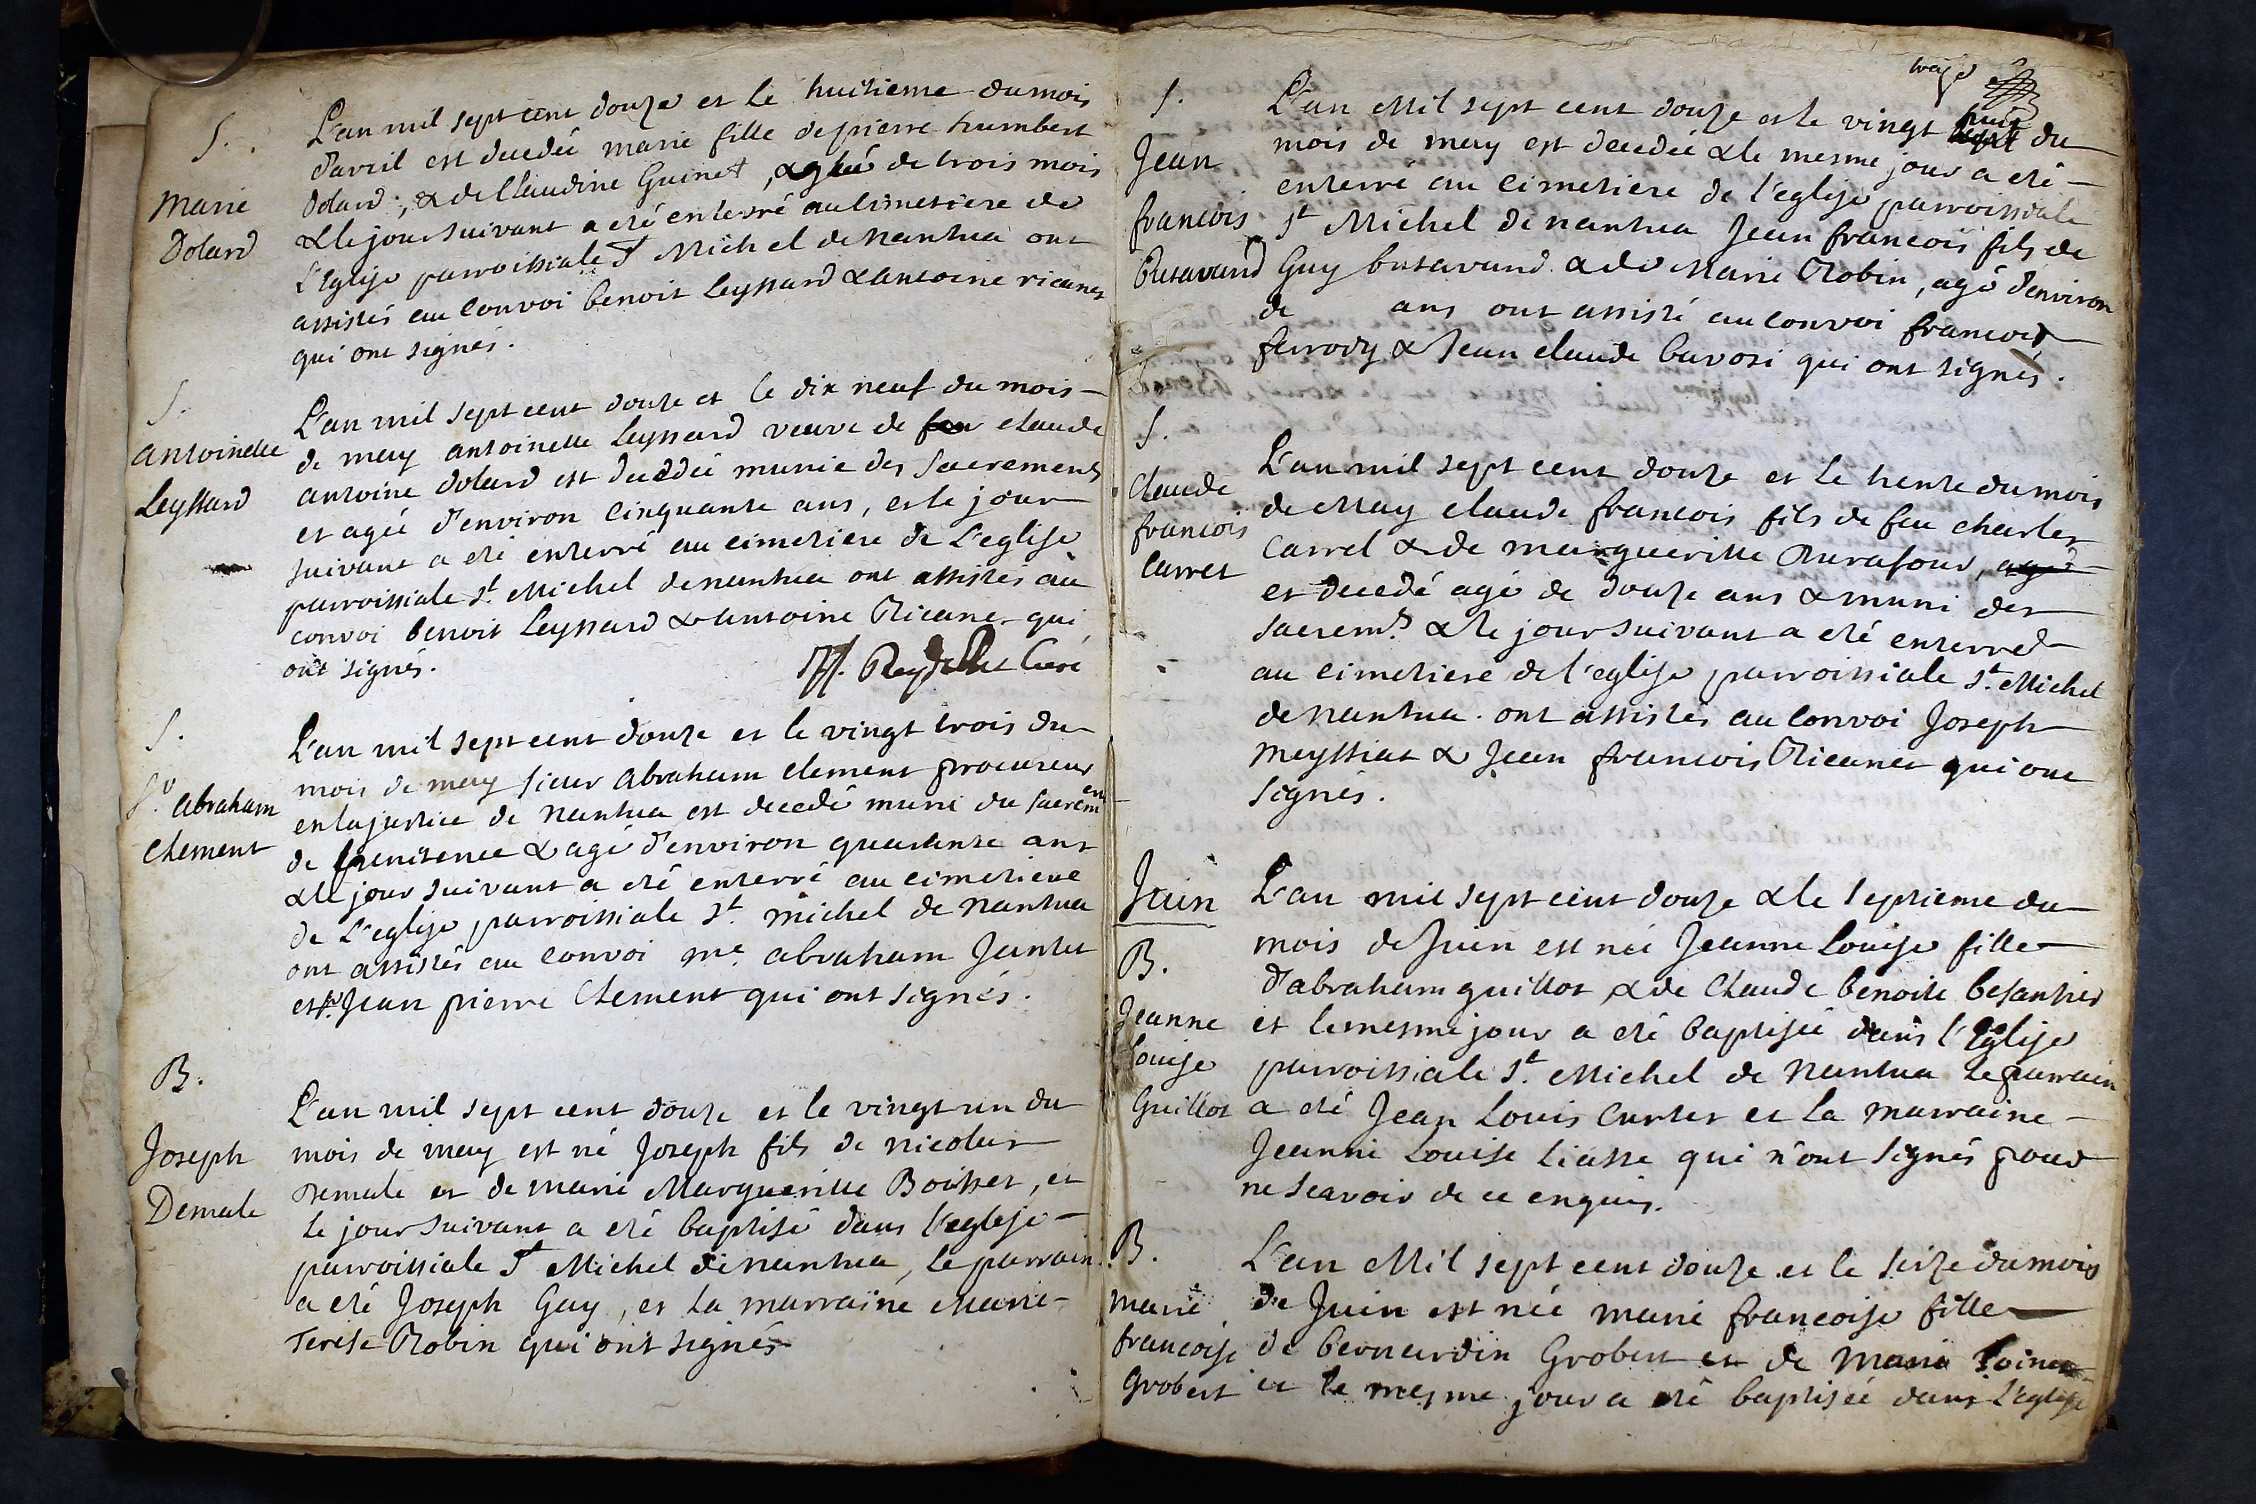 S.
Marie
Dolard
L'an mil sept cent douze et le huitieme du mois
d'avril est decedée marie fille de pierre humbert
dolard, & de Claudine Guinet, agée de trois mois
& le jour suivant a eté enterré au cimetiere de
l'Eglise parroissiale St Michel de nantua ont
assistés au convoi benoit Leyssard & antoine ricanet
qui ont signés.
S.
antoinette
Leyssard
L'an mil sept cent douze et le dix neuf du mois
de may antoinette Leyssard veuve de feu claude
antoine dolard est decedée munie des sacrements
et agée d'environ cinquante ans, et le jour
suivant a eté enterré au cimetiere de L'eglise
parroissiale St. Michel de nantua ont assistés au
convoi benoit Leyssard & antoine Ricanet qui
ont signés.
Curé
S.
Sr. abraham
Clement
L'an mil sept cent douze et le vingt trois du
mois de may sieur abraham clement procureur
en la justice de nantua est decedé muni du sacrem en
de penitence & agé d'environ quarante ans
& le jour suivant a eté enterré au cimetiere
de L'eglise parroissiale St. michel de nantua
ont assistés au convoi me. abraham Jantet
et sr. Jean pierre Clement qui ont signés.
B.
Joseph
Demale
L'an mil sept cent douze et le vingt un du
mois de may est né Joseph fils de nicolas
Demale et de marie Margueritte Boisset, et
le jour suivant a eté baptisé dans l'eglise
parroissiale St Michel de nantua, Le parrain
a eté Joseph Guy, et la marraine Marie
Terese Robin qui ont signés
S.
Jean
francois
butavand
L'an Mil sept cent douze et le vingt huit du
mois de may est decedée & le mesme jour a eté
enterré au cimetiere de l'eglise parroissiale
St Michel de nantua Jean francois fils de
Guy butavand & de Marie Robin, agé d'environ
de ans ont assisté au convoi francois
ferrody & Jean claude bavosi qui ont signés.
S.
Claude
francois
Carret
L'an mil sept cent douze et le trente du mois
de May claude francois fils de feu charles
Carrel & de margueritte Durafour, agé
et decedé agé de douze ans & muni des
sacremts. & le jour suivant a eté enterré
au cimetiere de l'eglise parroissiale St. Michel
de nantua. ont assistés au convoi Joseph
Meyssiat & Jean francois Ricanet qui ont
signés.
Juin
B.
Jeanne
Louise
Guillot
L'an mil sept cent douze & le septieme du
mois de Juin est née Jeanne Louise fille
d'abraham guillot & de Claude benoite besantier
et le mesme jour a eté baptisée dans l'Eglise
parroissiale St. Michel de nantua Le parrain
a eté Jean Louis Curtet et la marraine
Jeanne Louise Liasse qui n'ont signés pour
ne scavoir de ce enquis.
B.
Marie
francoise
Grobert
L'an Mil sept cent douze et le seize du mois
de Juin est née marie francoise fille
de bernardin Grobert et de marie
et le mesme jour a eté baptisée dans L'eglise